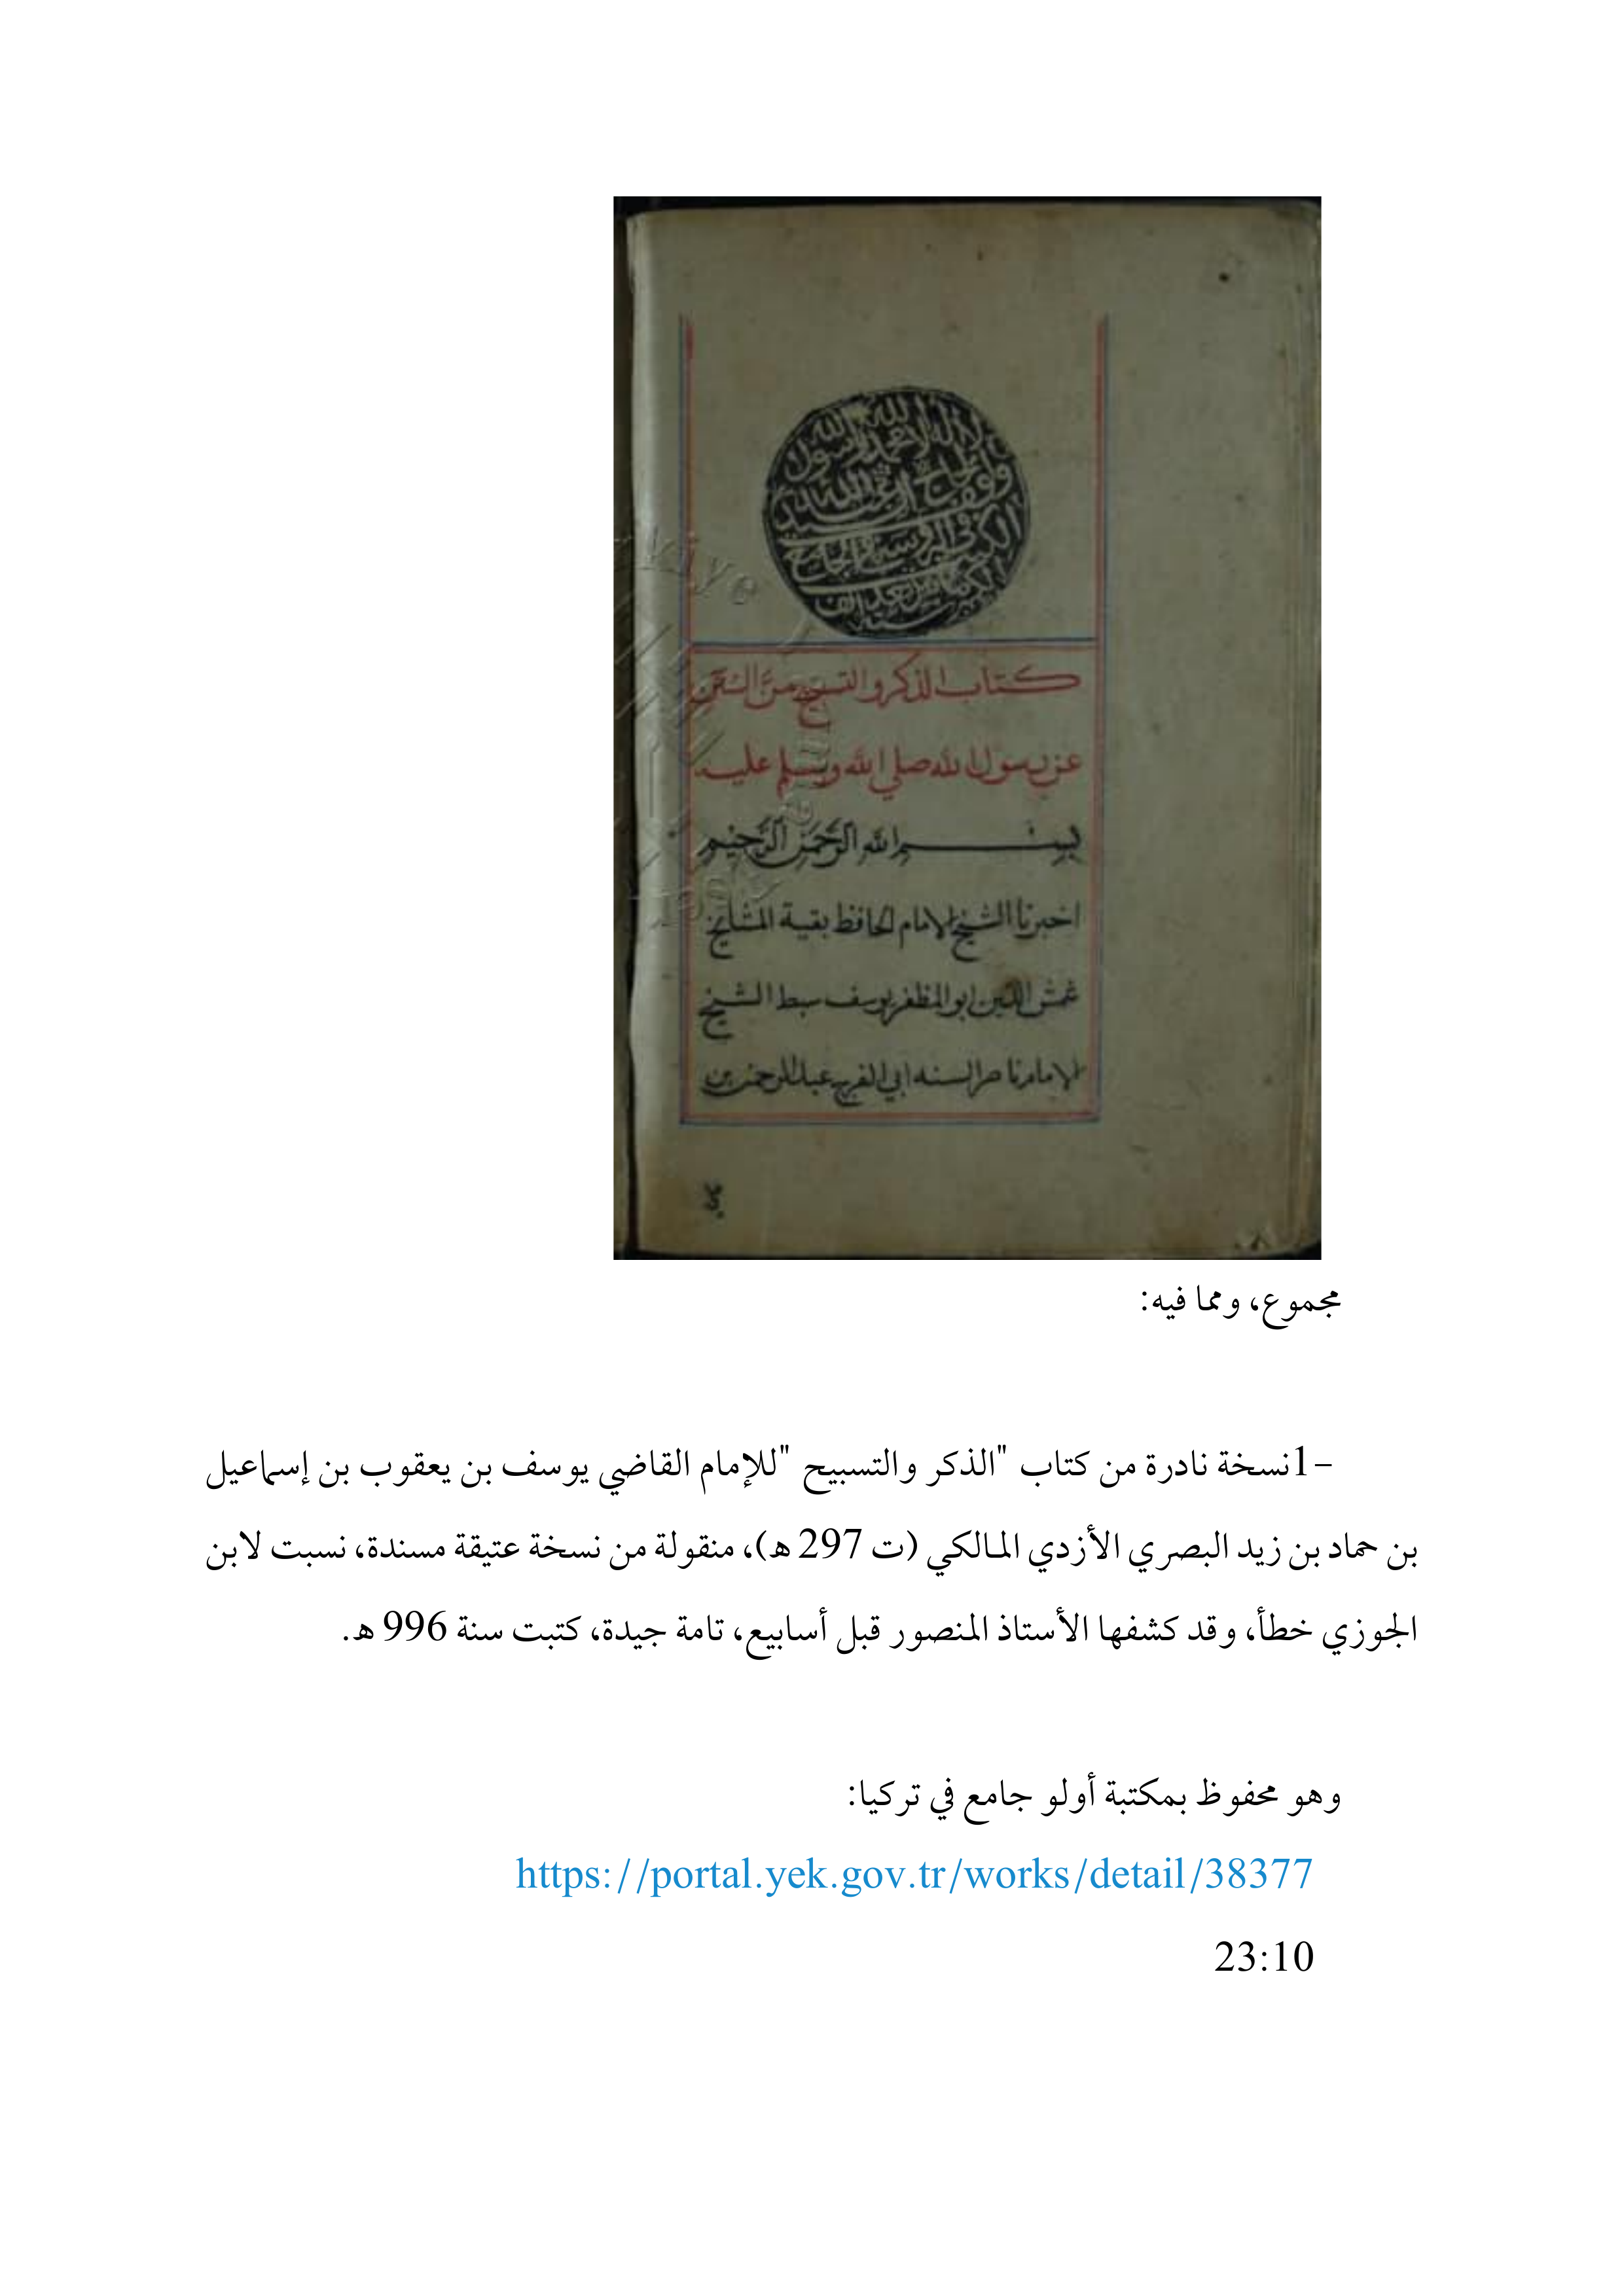 لا اله الا الله محمد رسول الله
كتاب الذكر والتسبيح من السنن
عن رسول الله صلي الله وسلم عليه
بسم الله الرحمن الرحيم
اخبرنا الشيخ الامام الحافظ بقية المشايخ
شمس الدين ابو المظفر يوسف سبط الشيخ
الامام ناصر السنه ابي الفرج عبد الرحمن بن
مجموع، ومما فيه:
-1نسخة نادرة من كتاب "الذكر والتسبيح "للإمام القاضي يوسف بن يعقوب بن إسماعيل
بن حماد بن زيد البصري الأزدي المالكي (ت 297 ه)، منقولة من نسخة عتيقة مسندة، نسبت لابن
الجوزي خطأ، وقد كشفها الأستاذ المنصور قبل أسابيع، تامة جيدة، كتبت سنة 996 ه.
وهو محفوظ بمكتبة أولو جامع في تركيا:
https://portal.yek.gov.tr/works/detail/38377
23:10